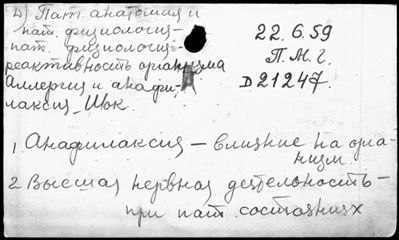 D) Пат. анатомия и
пат. физиология –
пат. физиология –
реактивность организма
Аллергия и анафи-
лаксия. Шок.
22.6.59
П.М.г.
D21247.
1. Анафилаксия – влияние на орга-
низм.
2 Высшая нервная деятельность –
при пат. состояниях